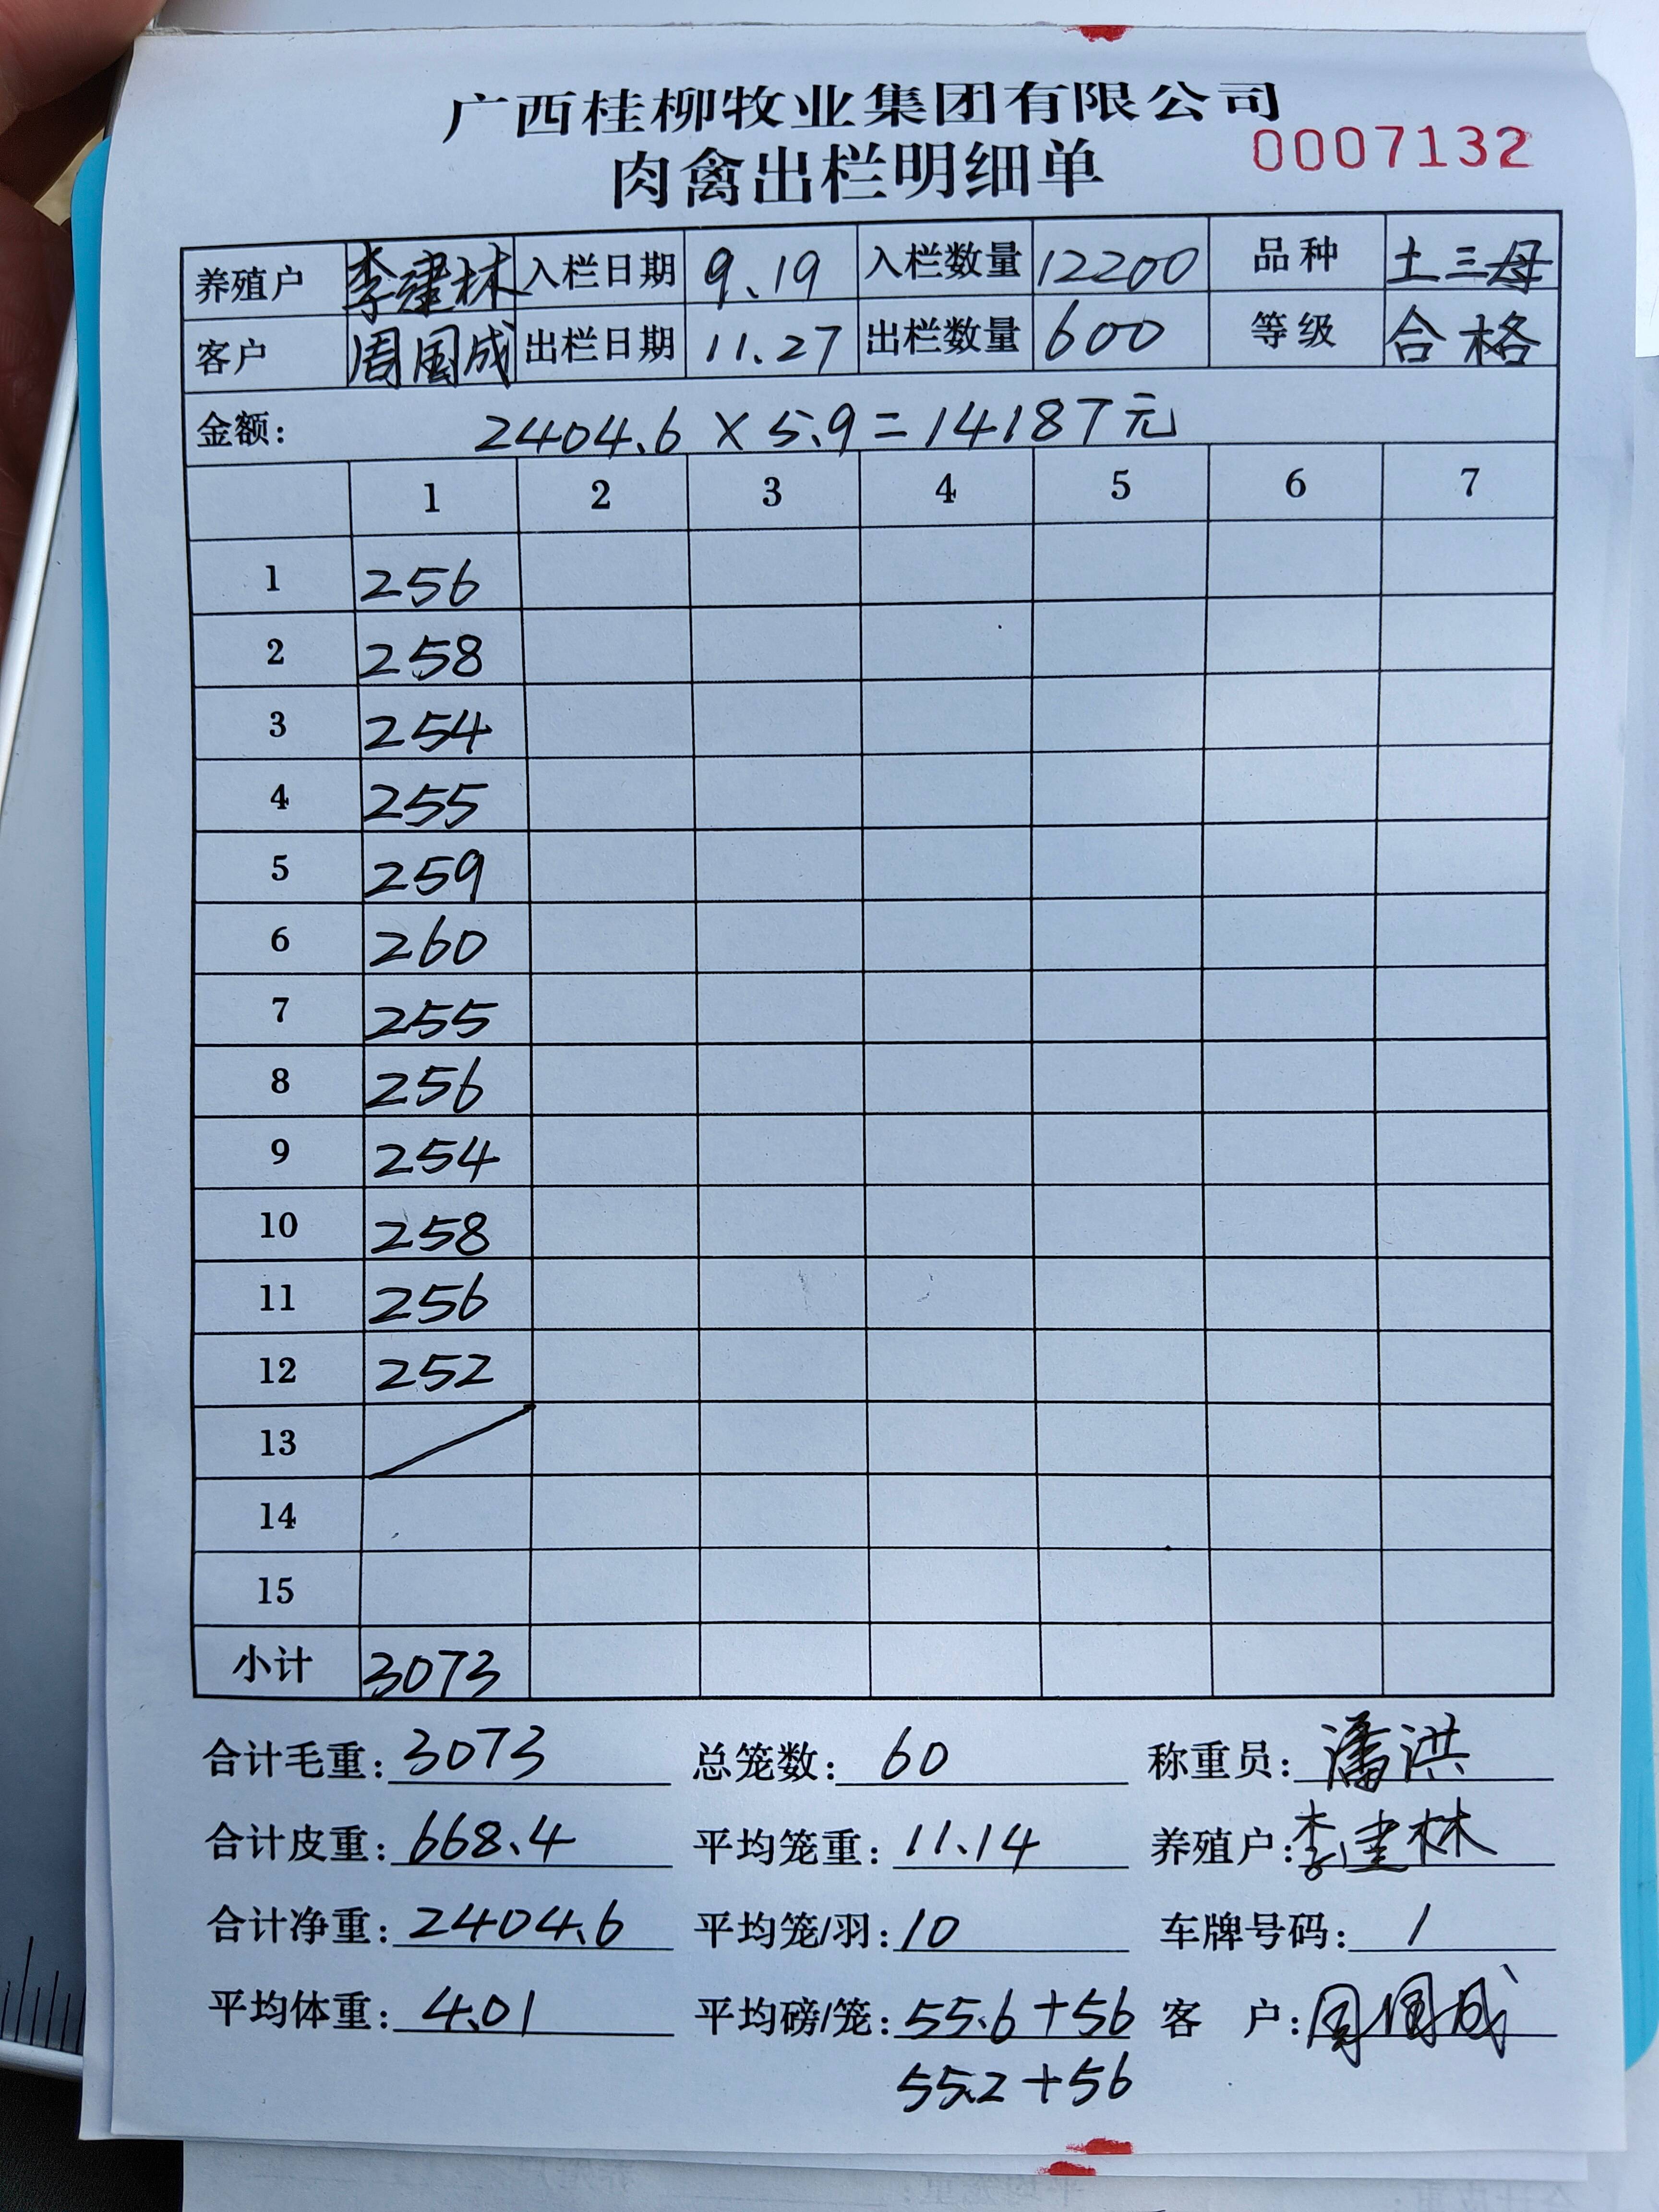 广西桂柳牧业集团有限公司
肉禽出栏明细单 0007132
养殖户 李建林 入栏日期 9.19 入栏数量 12200 品种 土三母
客户 周国成 出栏日期 11.27 出栏数量 600 等级 合格
金额: 2404.6×5.9=14187元
1 2 3 4 5 6 7
1 256
2 258
3 254
4 255
5 259
6 260
7 255
8 256
9 254
10 258
11 256
12 252
13
14
15
小计 3073
合计毛重: 3073 总笼数: 60 称重员: 潘洪
合计皮重: 668.4 平均笼重: 11.14 养殖户: 李建林
合计净重: 2404.6 平均笼/羽: 10 车牌号码: 1
平均体重: 4.01 平均磅/笼: 55.6+56 客 户: 周国成
55.2+56